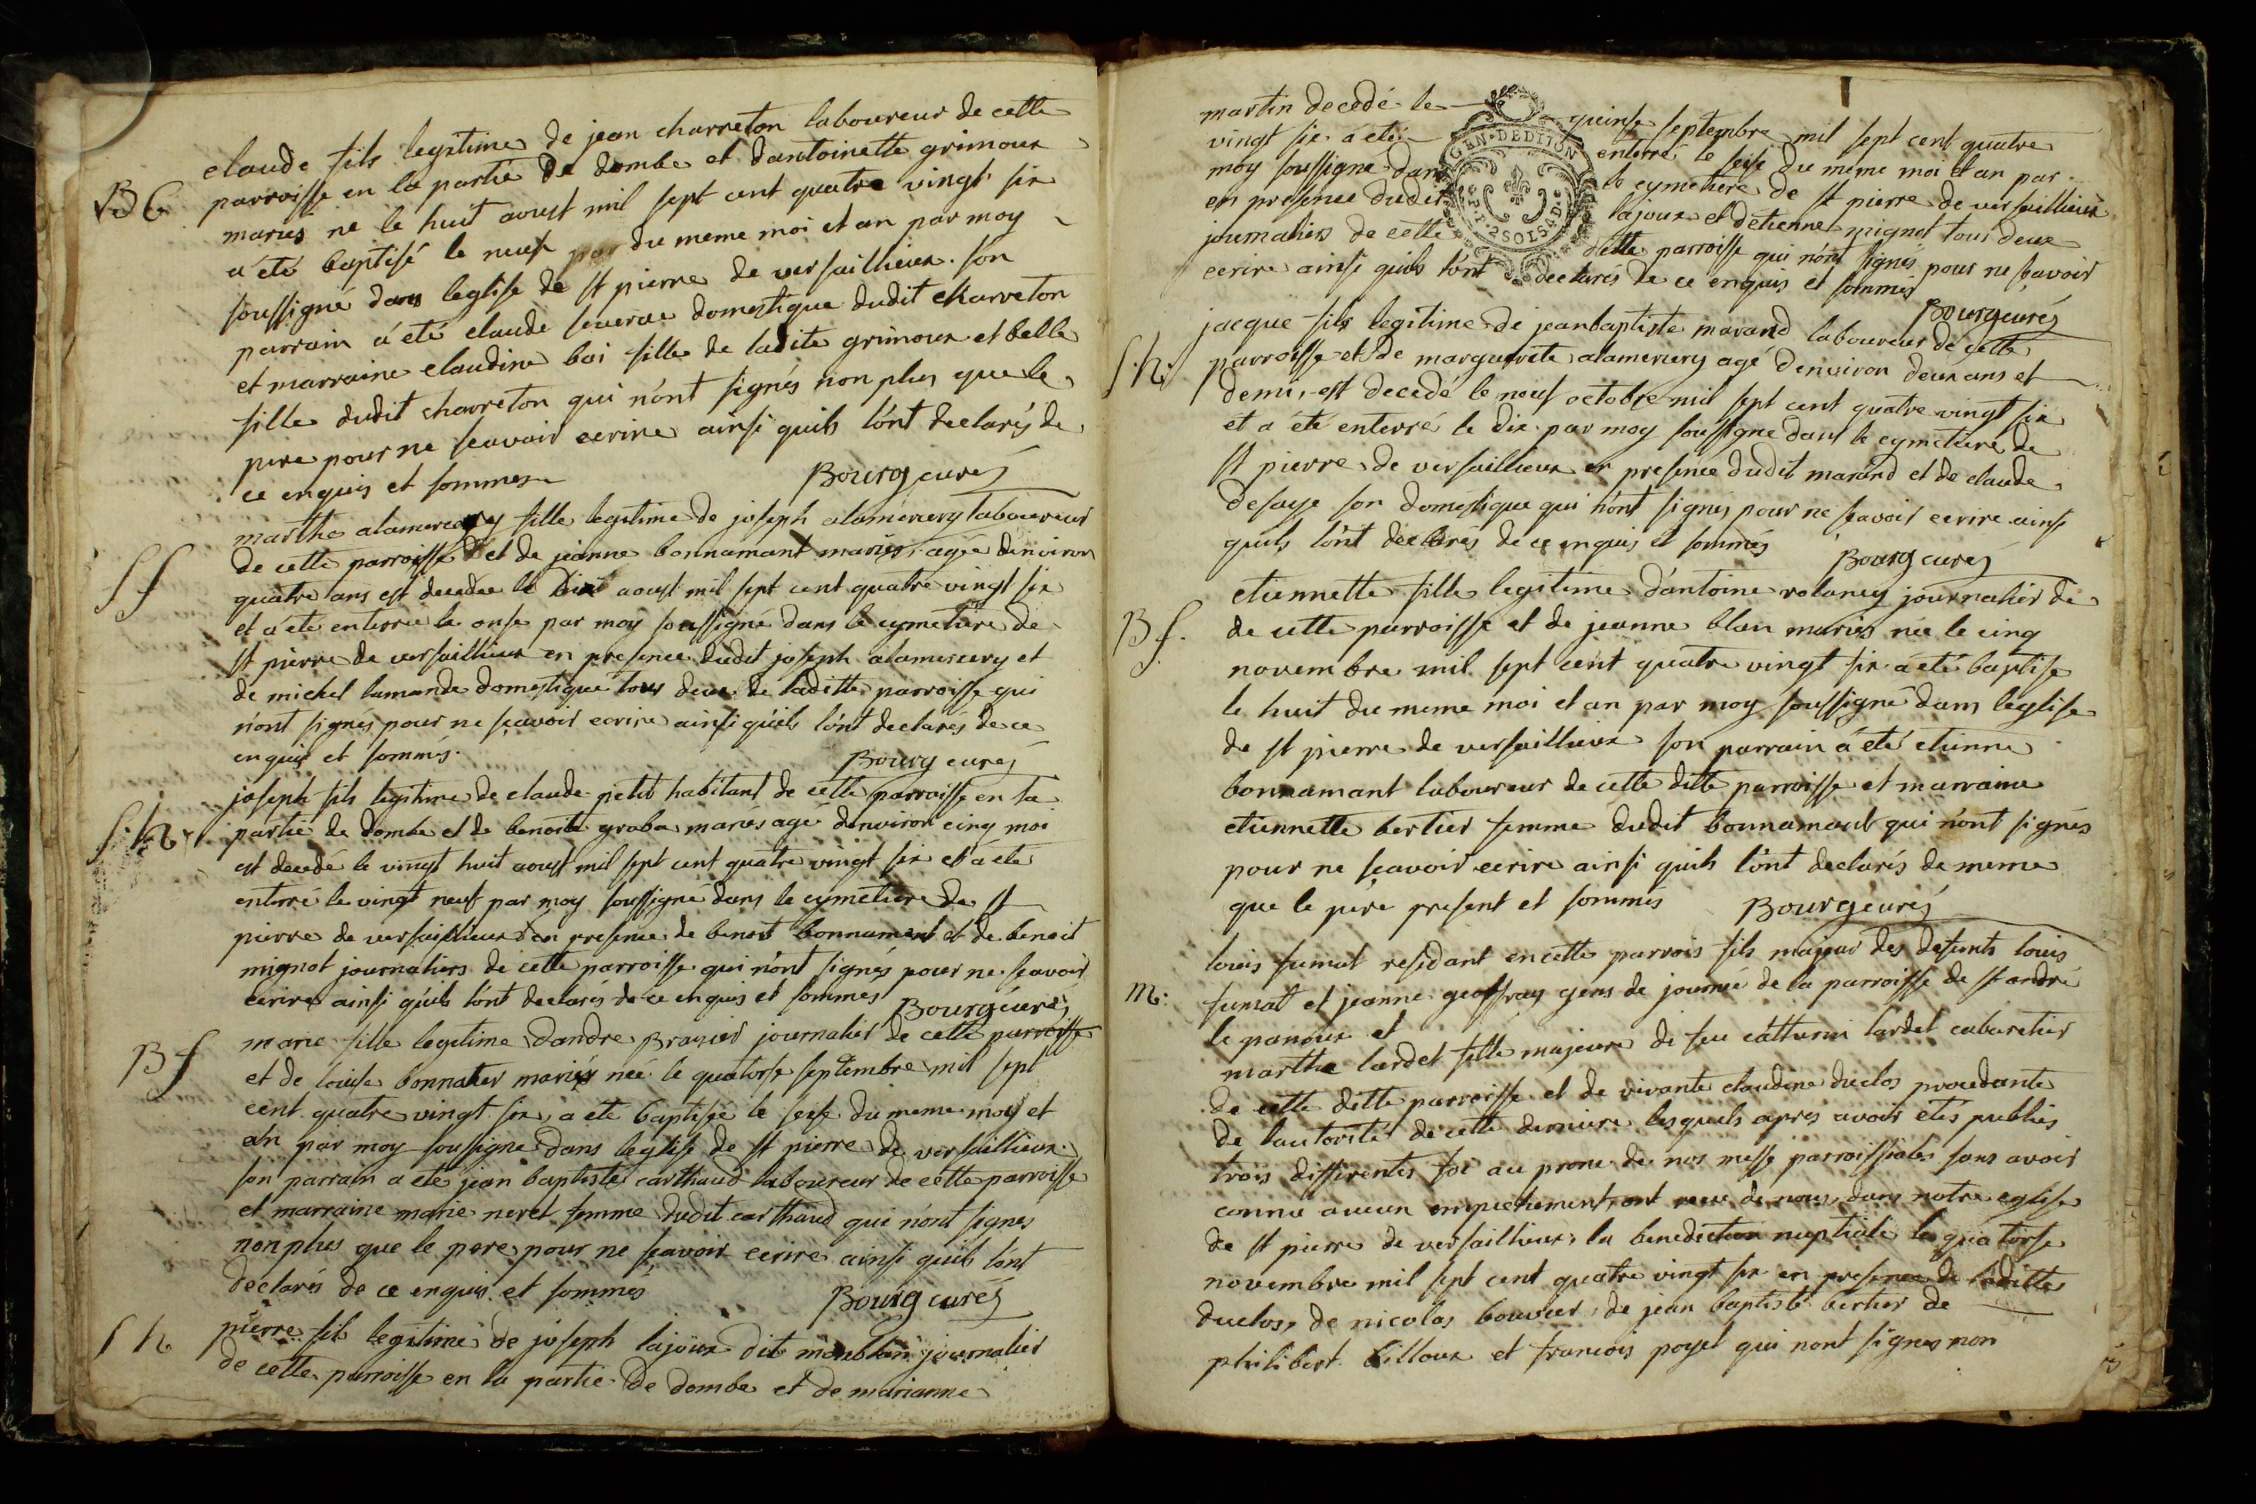 claude fils legitime de jean charreton laboureur de cette
B G parroisse en la partie de dombe et dantoinette grimoux
mariés né le huit aoust mil sept cent quatre vingt six
a été baptisé le neuf du meme moi et an par moy
soussigné dans leglise de st pierre de versaillieux. son
parrain a été claude domestique dudit charreton
et marraine claudine boi fille de ladite grimoux et belle
fille dudit charreton qui n'ont signés non plus que le
pere pour ne scavoir ecrire ainsi quils l'ont declarés de
ce enquis et sommes
Bourg curé
marthe alamercery fille legitime de joseph alamercery laboureur
de cette parroisse et de jeanne bonnamant mariés, agée d'environ
S f quatre ans est decedee le dix aoust mil sept cent quatre vingt six
et a été enterrée le onse par moy soussigné dans le cymetiere de
st pierre de versaillieux en presence dudit joseph alamercery et
de michel lamande domestique tous deux de laditte parroisse qui
n'ont signés pour ne scavoir ecrire ainsi quils l'ont declarés de ce
enquis et sommés.
Bourg curé
joseph fils legitime de claude petit habitant de cette parroisse en la
S. h. partie de dombe et de benoite graba mariés agé d'environ cinq moi
est decedé le vingt huit aoust mil sept cent quatre vingt six et a été
enterré le vingt neuf par moy soussigné dans le cymetiere de st
pierre de versaillieux en presence de benoit bonnamant et de benoit
mignot journaliers de cette parroisse qui n'ont signés pour ne scavoir
ecrire ainsi quils l'ont declarés de ce enquis et sommés
Bourg curé
B f marie fille legitime d'andre Brasier journalier de cette parroisse
et de louise bonnatier mariés née le quatorse septembre mil sept
cent quatre vingt six, a été baptisée le seise du meme moy et
an par moy soussigné dans leglise de st pierre de versaillieux
son parrain a été jean baptiste carthaud laboureur de cette parroisse
et marraine marie neret femme dudit carthaud qui n'ont signes
non plus que le pere pour ne scavoir ecrire ainsi quils l'ont
declarés de ce enquis et sommés
Bourg curé
S h pierre fils legitime de joseph lajoux dit journalier
de cette parroisse en la partie de dombe et de marianne
martin decedé le quinse septembre mil sept cent quatre
vingt six a été enterré le seise du meme moi et an par
moy soussigné dans le cymetiere de st pierre de versaillieux
en presence dudit lajoux et d'etienne mignot tous deux
journaliers de cette ditte parroisse qui n'ont signés pour ne scavoir
ecrire ainsi quils l'ont declarés de ce enquis et sommés
GEN. DEDITION
P.P. 2 SOLS 4 D.
Bourg curé
jacque fils legitime de jean baptiste marand laboureur de cette
S. h. parroisse et de marguerite alamercery agé d'environ deux ans et
demi, est decedé le neuf octobre mil sept cent quatre vingt six
et a été enterré le dix par moy soussigné dans le cymetiere de
st pierre de versaillieux en presence dudit marand et de claude
desaye son domestique qui n'ont signés pour ne scavoir ecrire ainsi
quils l'ont declarés de ce enquis et sommés
Bourg curé
etiennette fille legitime d'antoine volancy journalier de
B f. de cette parroisse et de jeanne blan mariés née le cinq
novembre mil sept cent quatre vingt six a été baptisé
le huit du meme moi et an par moy soussigné dans leglise
de st pierre de versaillieux son parrain a été etienne
bonnamant laboureur de cette ditte parroisse et marraine
etiennette bertier femme dudit bonnamant qui n'ont signés
pour ne scavoir ecrire ainsi quils l'ont declarés de meme
que le père present et sommés
Bourg curé
louis fumat residant en cette parrois fils majeur des defunts louis
m. fumat et jeanne geoffray gens de journée de la parroisse de st andré
le panoux et
marthe lardet fille majeure de feu lardet cabaretier
de cette ditte parroisse et de vivante claudine duclos procedante
de l'autorité de cette derniere lesquels apres avoir etés publiés
trois differentes foi au prone de nos messe parroissiales sans avoir
connu aucun empechement, ont recu de nous dans notre eglise
de st pierre de versaillieux, la benediction nuptiale le quatorse
novembre mil sept cent quatre vingt six en presence de laditte
duclos, de nicolas bouvier, de jean baptiste bertier de
philibert billoux et francois poyet qui nont signés non